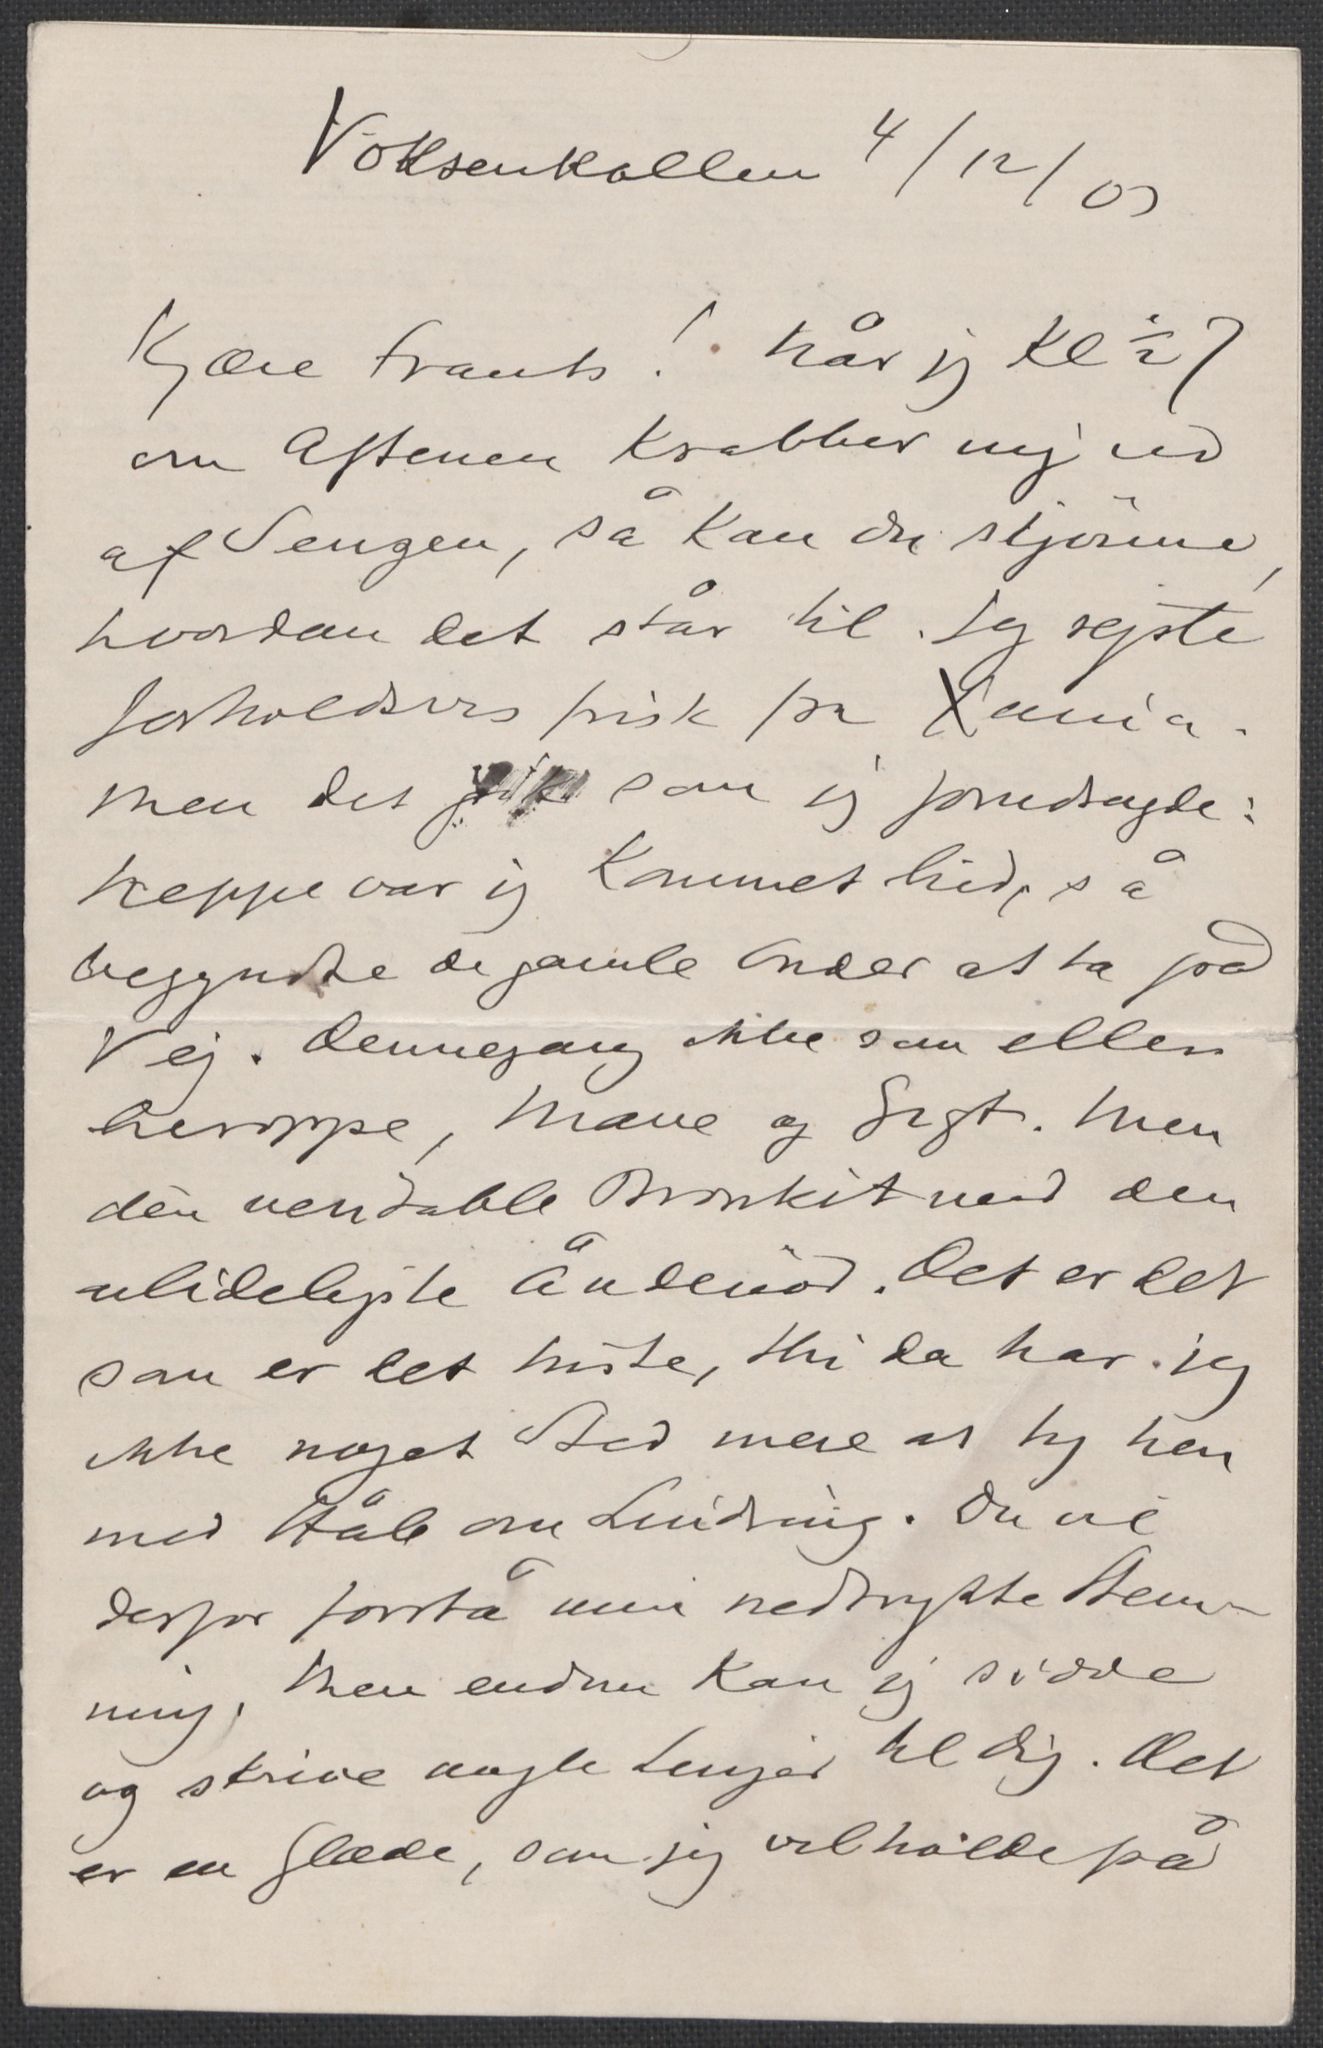 Voksenkollen 4/12/03
Kjære Frants! Når jeg Kl ½7
om Aftenen krabber mig ud
af Sengen, så kan du skjönne,
hvordan det står til. Jeg rejste
forholdsvis frisk fra Xania.
Men det gik som jeg forudsagde:
Neppe var jeg kommet hid, så
begyndte de gamle Onder at ta på
Vej. Dennegang ikke som ellers
heroppe, Mave og Gigt. Men
den veritable Bronkit med den
ulideligste Åndenöd. Det er det
som er det triste, thi da har jeg
ikke noget Sted mere at ty hen
med Håb om Lindring. Du vil
derfor forstå min nedtrykte Stem-
ning. Men endnu kan jeg sidde
og skrive nogle Linjer til dig. Det
er en Glæde, som jeg vil holde på